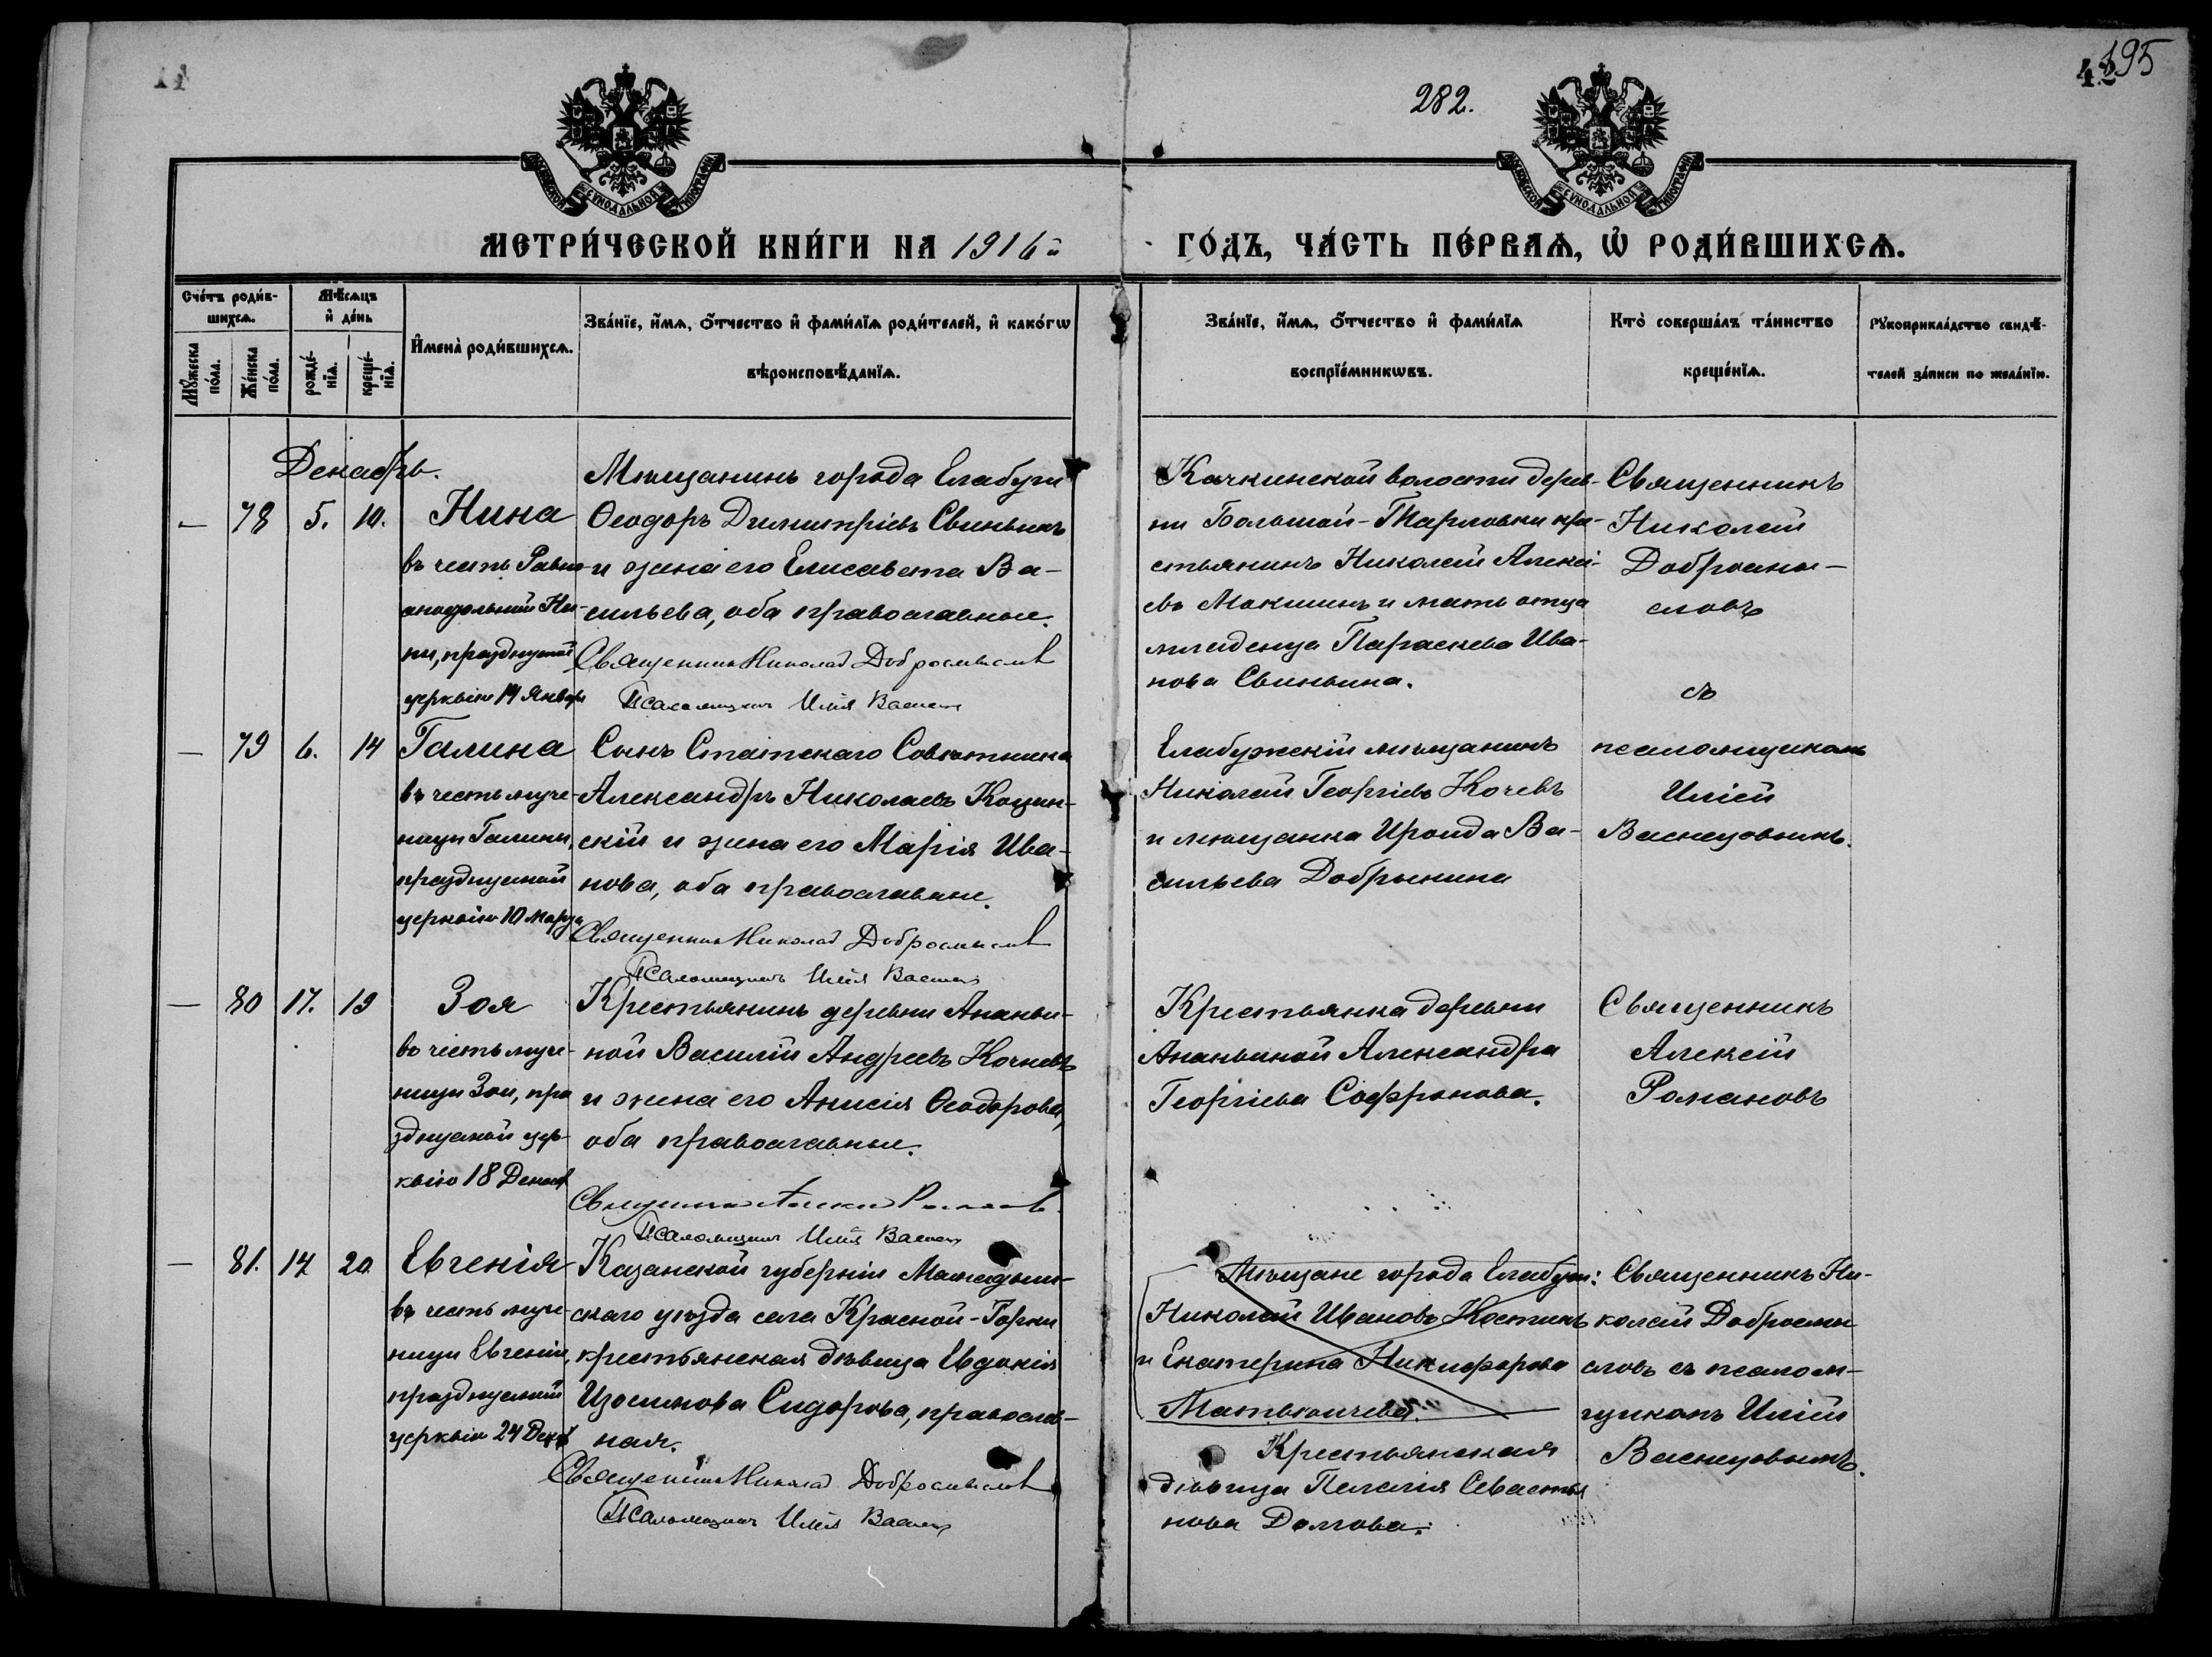 195
42
282.
МОСКОВСКОЙ СѴНОДАЛЬНОЙ ТИПОГРАФІИ
МОСКОВСКОЙ СѴНОДАЛЬНОЙ ТИПОГРАФІИ
МЕТРИ́ЧЕСКОЙ КНИ́ГИ НА 1916й
ГО́ДЪ, ЧА́СТЬ ПЕ́РВАѦ, Ѡ҆ РОДИ́ВШИХСѦ.
Сче́тъ роди́в-
шихсѧ.
Мꙋ́жеска по́ла.
Же́нска по́ла.
Мѣ́сѧцъ
и҆ де́нь
рожде́-
нїѧ.
креще́-
нїѧ.
И҆мена̀ роди́вшихсѧ.
Зва́нїе, и҆́мѧ, ѻ҆́тчество и҆ фами́лїѧ роди́телей, и҆ како́гѡ
вѣроисповѣ́данїѧ.
Зва́нїе, и҆́мѧ, ѻ҆́тчество и҆ фами́лїѧ
воспрїе́мникѡвъ.
Кто̀ соверша́лъ та́инство
креще́нїѧ.
Рꙋкоприкла́дство свидѣ́-
телей за́писи по жела́нїю.
Декабрь.
— 78 5. 10.
Нина
въ честь Равно-
апостольной Ни-
ны, празднуемой
церквію 14 Января
Мѣщанинъ города Елабуги
Ѳеодоръ Димитріевъ Свиньинъ
и жена его Елисавета Ва-
сильева, оба православные.
Священник Николай Добросмыслов
Псаломщикъ Илія Васнец
Качкинской волости дерев-
ни Большой-Тарловки кре-
стьянинъ Николай Алексѣ-
евъ Мокшинъ и мать отца
младенца Параскева Ива-
нова Свиньина.
Священникъ
Николай
Добросмы-
словъ
съ
псаломщикомъ
Иліей
Васнецовымъ.
— 79 6. 14
Галина
въ честь муче-
ницы Галины,
празднуемой
церквію 10 Марта
Сынъ Статскаго Совѣтника
Александръ Николаевъ Кощин-
скій и жена его Марія Ива-
нова, оба православные.
Священник Николай Добросмыслов
Псаломщикъ Илія Васнец
Елабужскій мѣщанинъ
Николай Георгіевъ Кочевъ
и мѣщанка Ираида Ва-
сильева Добрынина
— 80 17. 19
Зоя
въ честь муче-
ницы Зои, пра
зднуемой цер-
квію 18 Декаб
Крестьянинъ деревни Ананьи-
ной Василій Андреевъ Кочневъ
и жена его Анисія Ѳеодорова,
оба православные.
Священник Алексій Романов
Псаломщикъ Илія Васнец
Крестьянка деревни
Ананьиной Александра
Георгіева Софронова.
Священникъ
Алексій
Романовъ
— 81. 17 20.
Евгенія
въ честь муче-
ницы Евгеніи,
празднуемой
церквію 24 Декб
Казанской губерніи Мамадыш-
скаго уѣзда села Красной-Горки
крестьянская дѣвица Евдокія
Изосимова Сидорова, православ-
ная.
Священник Николай Добросмыслов
Псаломщикъ Илія Васнец
Мѣщане города Елабуги:
Николай Ивановъ Костинъ
и Екатерина Никифорова
Матвѣичева.
Крестьянская
дѣвица Пелагія Севастья
нова Долгова.
Священникъ Ни-
колай Добросмы
словъ съ псалом-
щикомъ Иліей
Васнецовымъ.